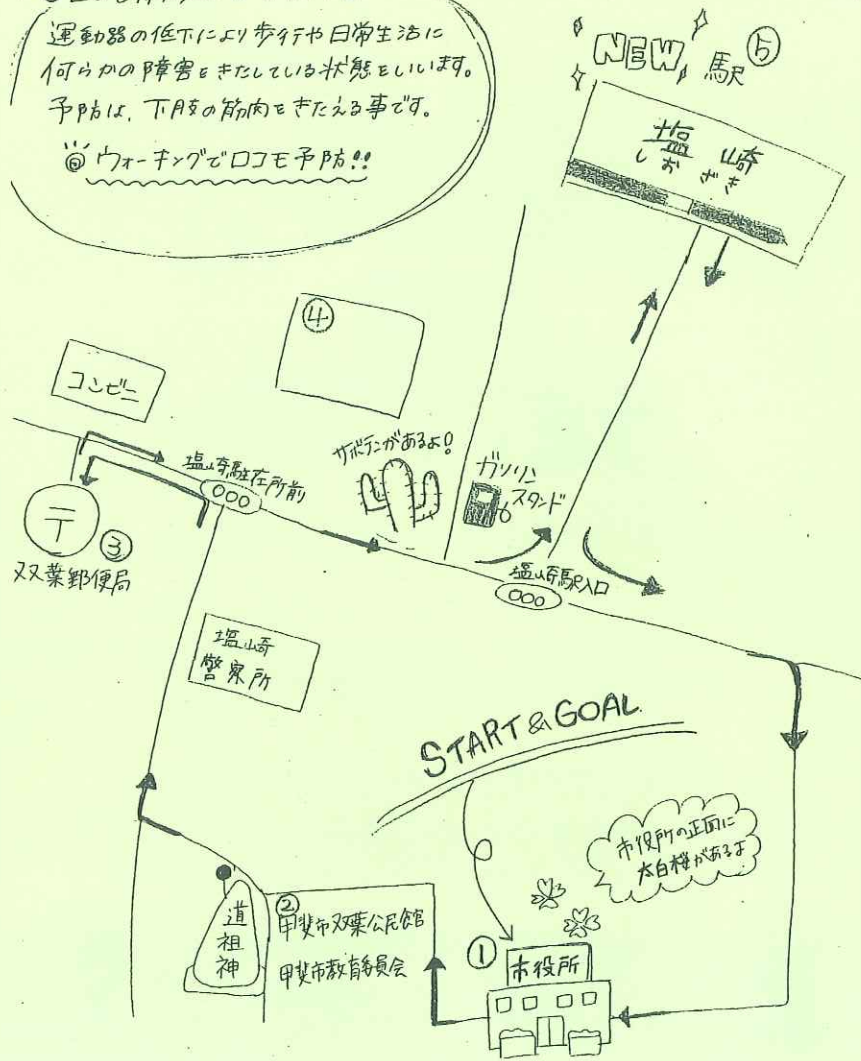 運動器の低下により歩行や日常生活に
何らかの障害をきたしている状態をいいます。
予防は、下肢の筋肉をきたえる事です。
ウォーキングでロコモ予防!!
NEW 駅 ⑤
塩崎
しおざき
④
コンビニ
塩崎駐在所前
サボテンがあるよ!
ガソリン
スタンド
〒 ③
双葉郵便局
塩崎駅入口
塩崎
警察所
START & GOAL
市役所の正面に
太白桜があるよ
道祖神
②
甲斐市双葉公民館
甲斐市教育委員会
①
市役所